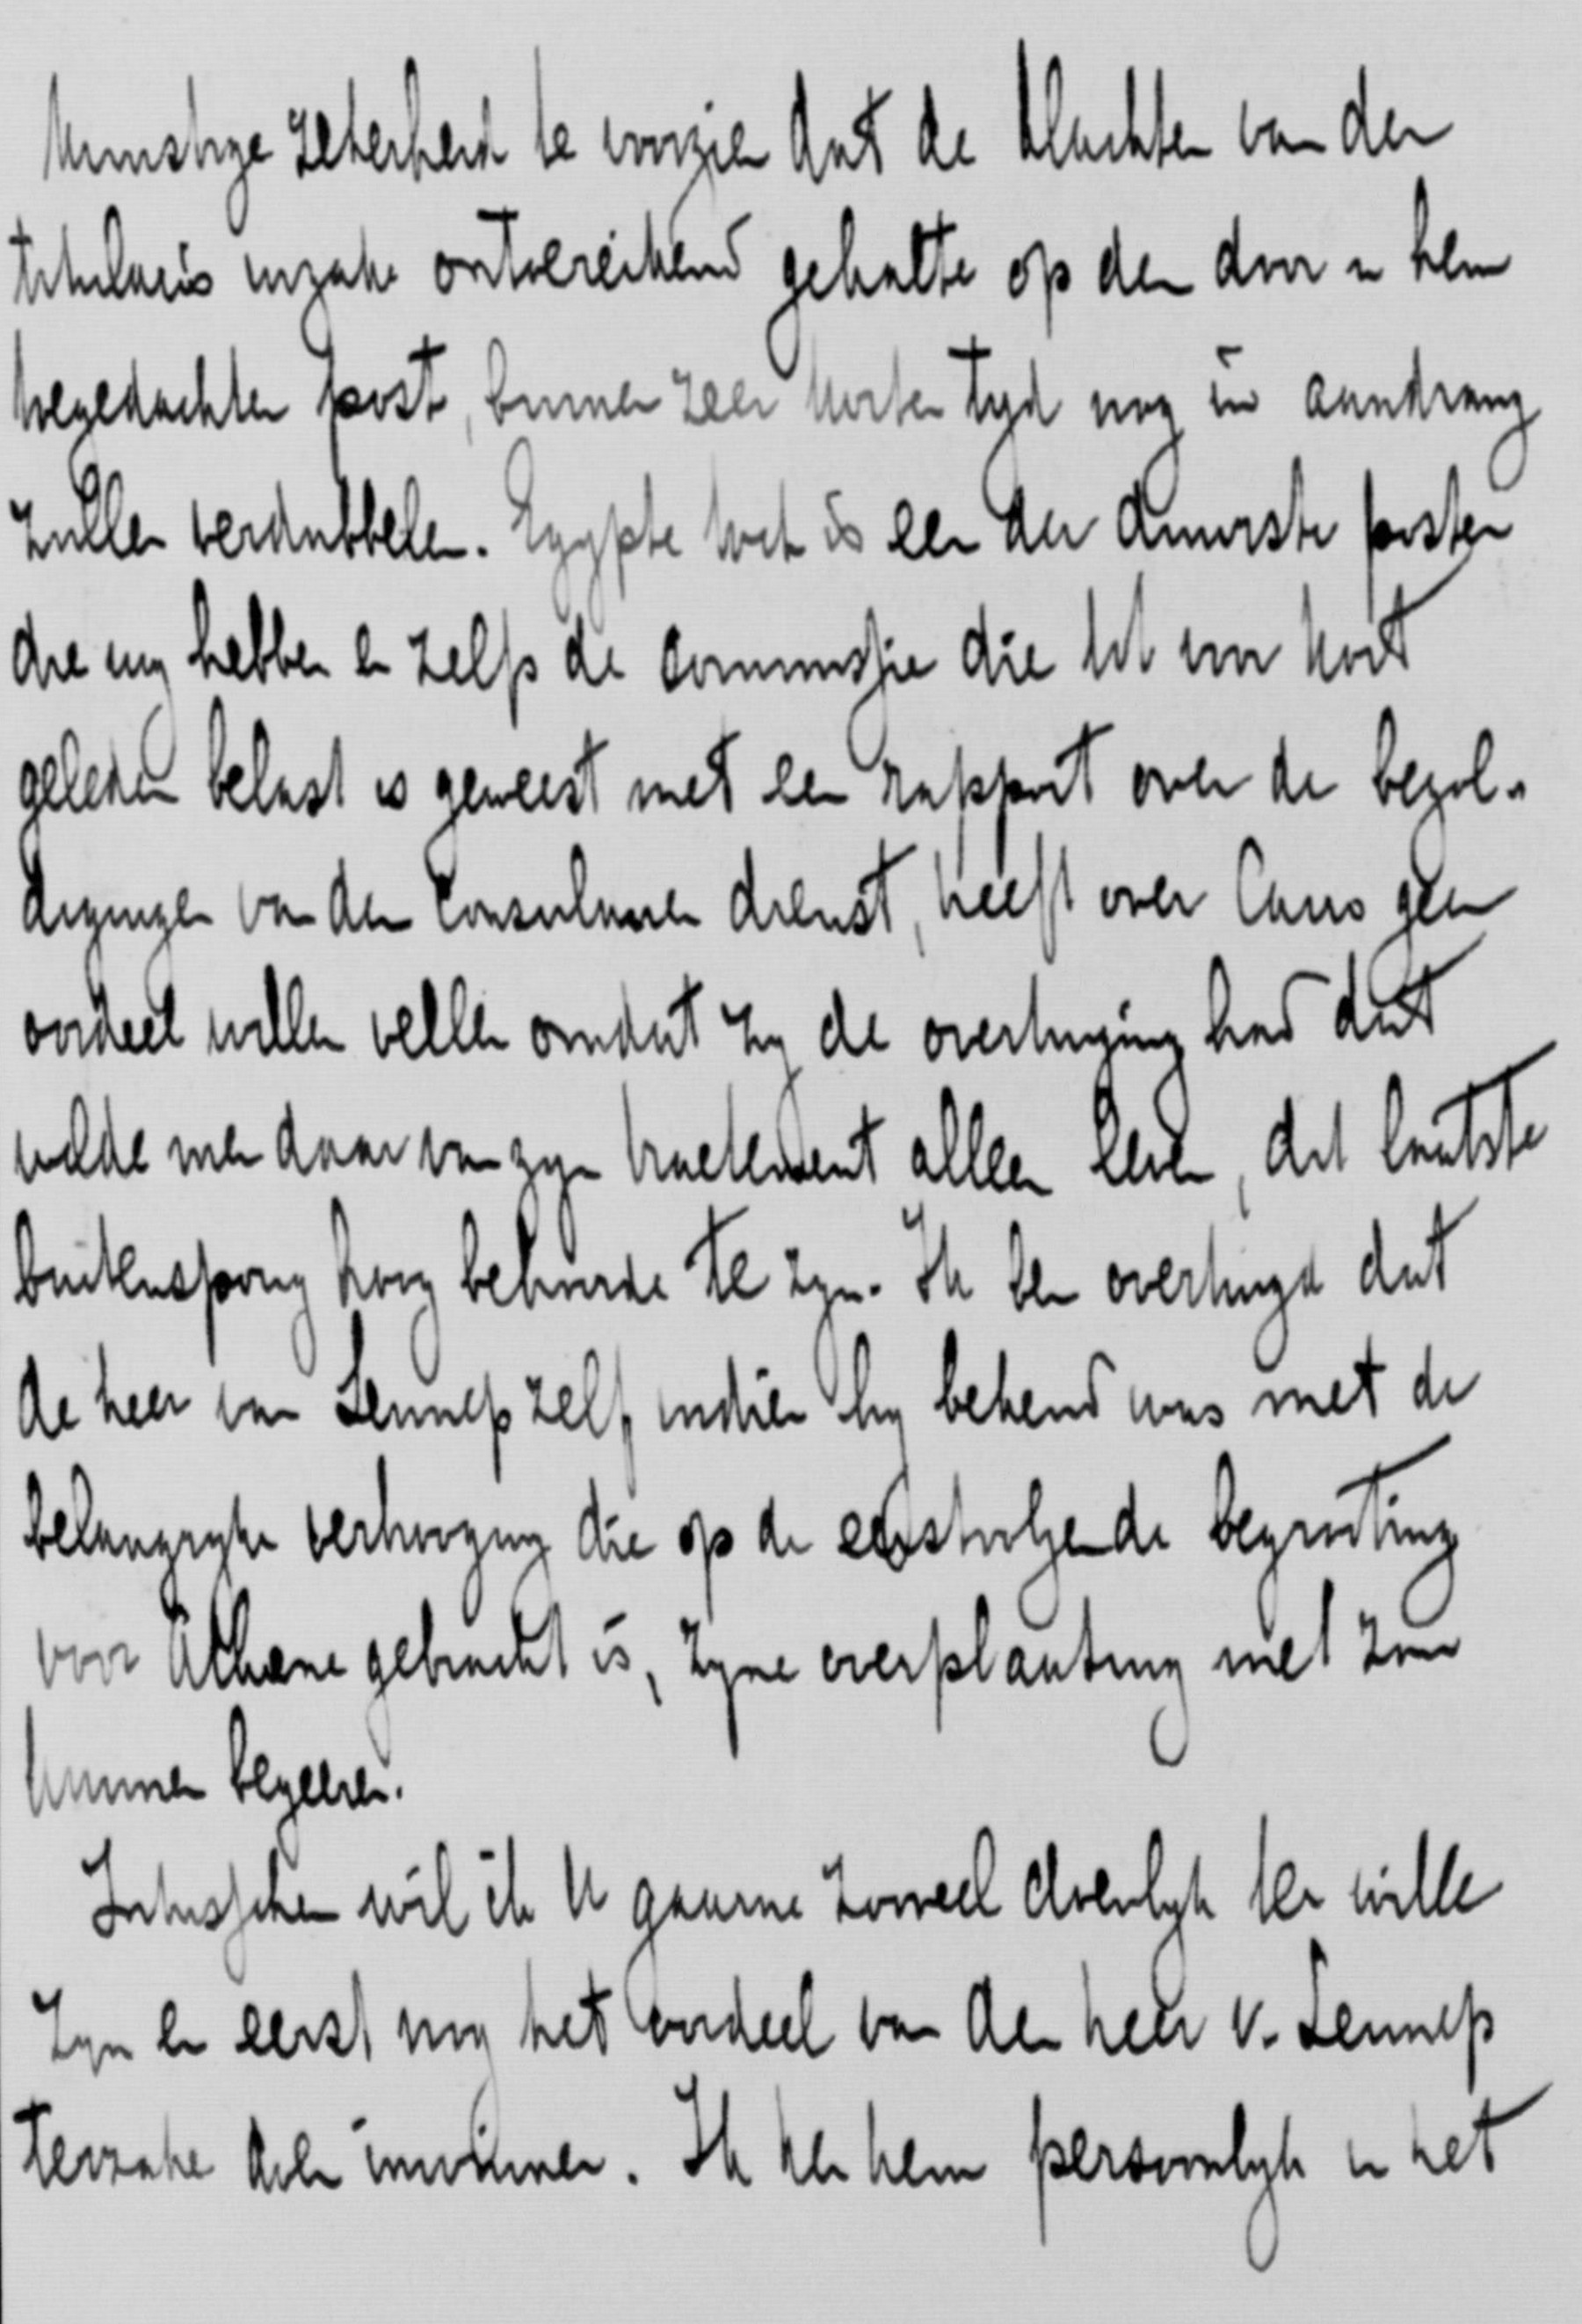 kunstige zekerheid te voorzien dat de klachten van den
titularis inzake ontoereikend gehalte op den door u hem
toegedachten post, binnen zeer korten tyd nog in aandrang
zullen verdubbelen. Egypte toch is een der duurste posten
die wy hebben en zelfs de commissie die tot voor kort
geleden belast is geweest met een rapport over de bezol-
digingen van den Consulairen dienst, heeft over Cairo geen
oordeel willen vellen omdat zy de overtuiging had dat
wilde men daar van zyn tractement alleen leven, dit laatste
buitensporig hoog behoorde te zyn. Ik ben overtuigd dat
de heer van Lennep zelf, indien hy bekend was met de
belangryke verhooging die op de eerstvolgende begrooting
voor Athene gebracht is, zyne overplaatsing niet zou
kunnen begeeren.
Intusschen wil ik U gaarne zooveel doenlyk ter wille
zyn en eerst nog het oordeel van den heer v. Lennep
terzake doen inwinnen. Ik ken hem persoonlyk en het